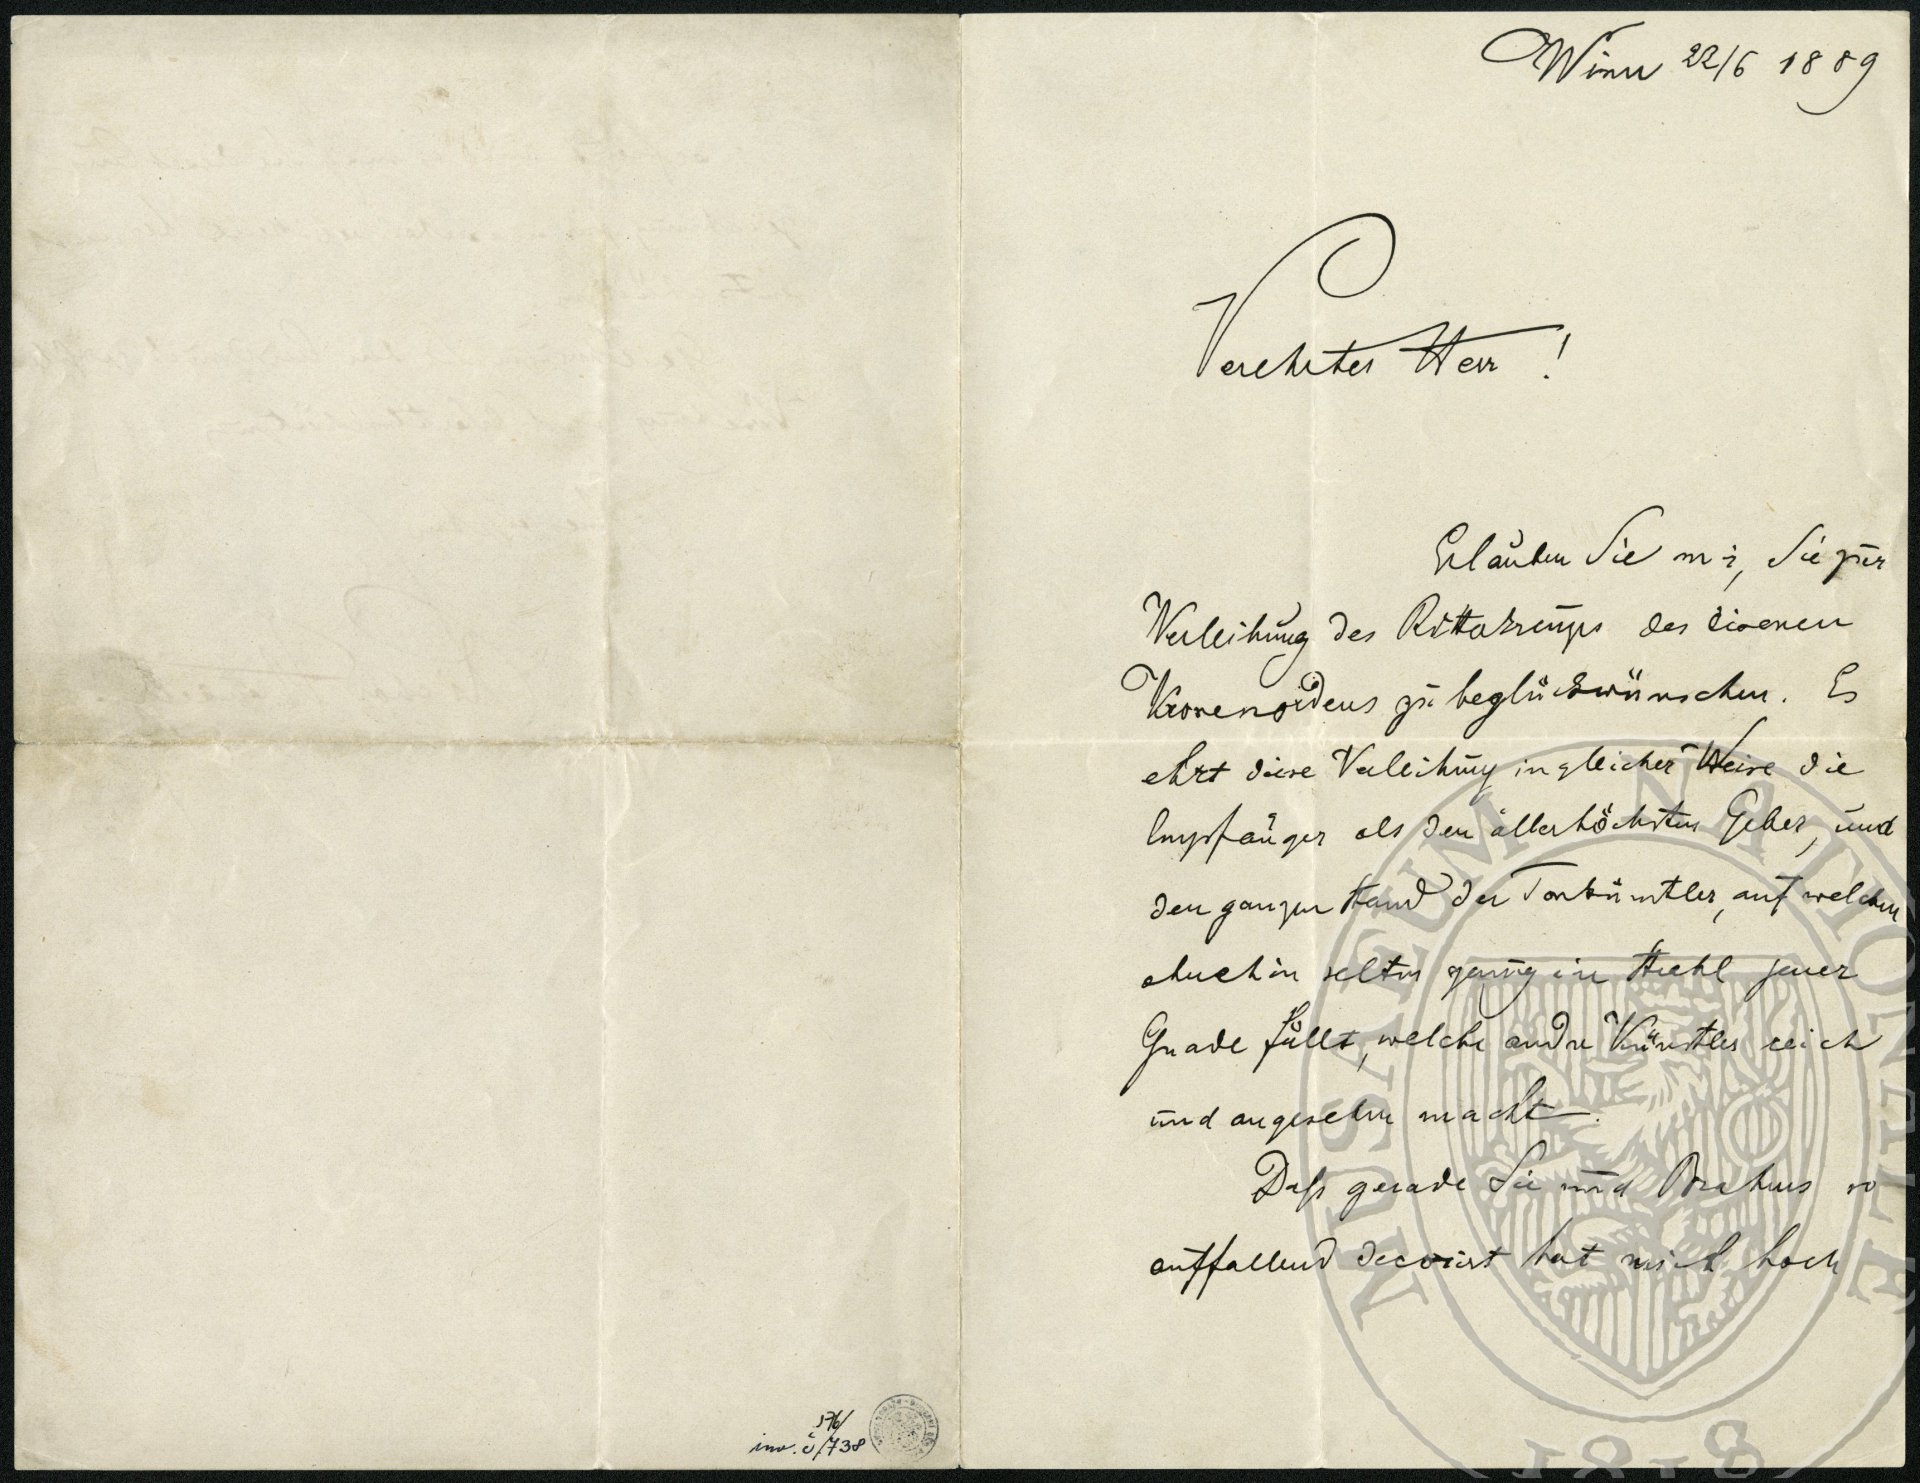 Wien 22/6 1889
Verehrter Herr!
Erlauben Sie mir, Sie zur
Verleihung des Ritterkreuzes der eisernen
Kronenordens zu beglückwünschen. Es
ehrt diese Verleihung in gleicher Weise die
Empfänger als den allerhöchsten Geber, und
den ganzen Stand der Tonkünstler, auf welchen
ohnehin selten genug ein Strahl jener
Gnade fällt, welche andre Künstler reich
und angesehen macht.
Daß gerade Sie und Brahms so
auffallend decorirt hat mich hoch
576/
inv. č/738
MUSAEUM NATIONALE
1818